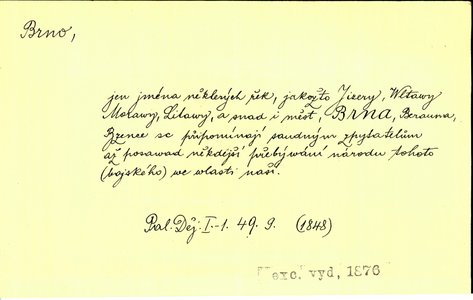 Brno,
jen jména některých řek, jakožto Jizery, Wltawy
Morawy, Litawy, a snad i měst, Brna, Berauna,
Bzence se připomínají saudným zpytatelům
až posawad někdější přebýwání národu tohoto
(bojského) we wlasti naší.
Pal. Děj. I.-1. 49. 9. (1848)
exc. vyd, 1876